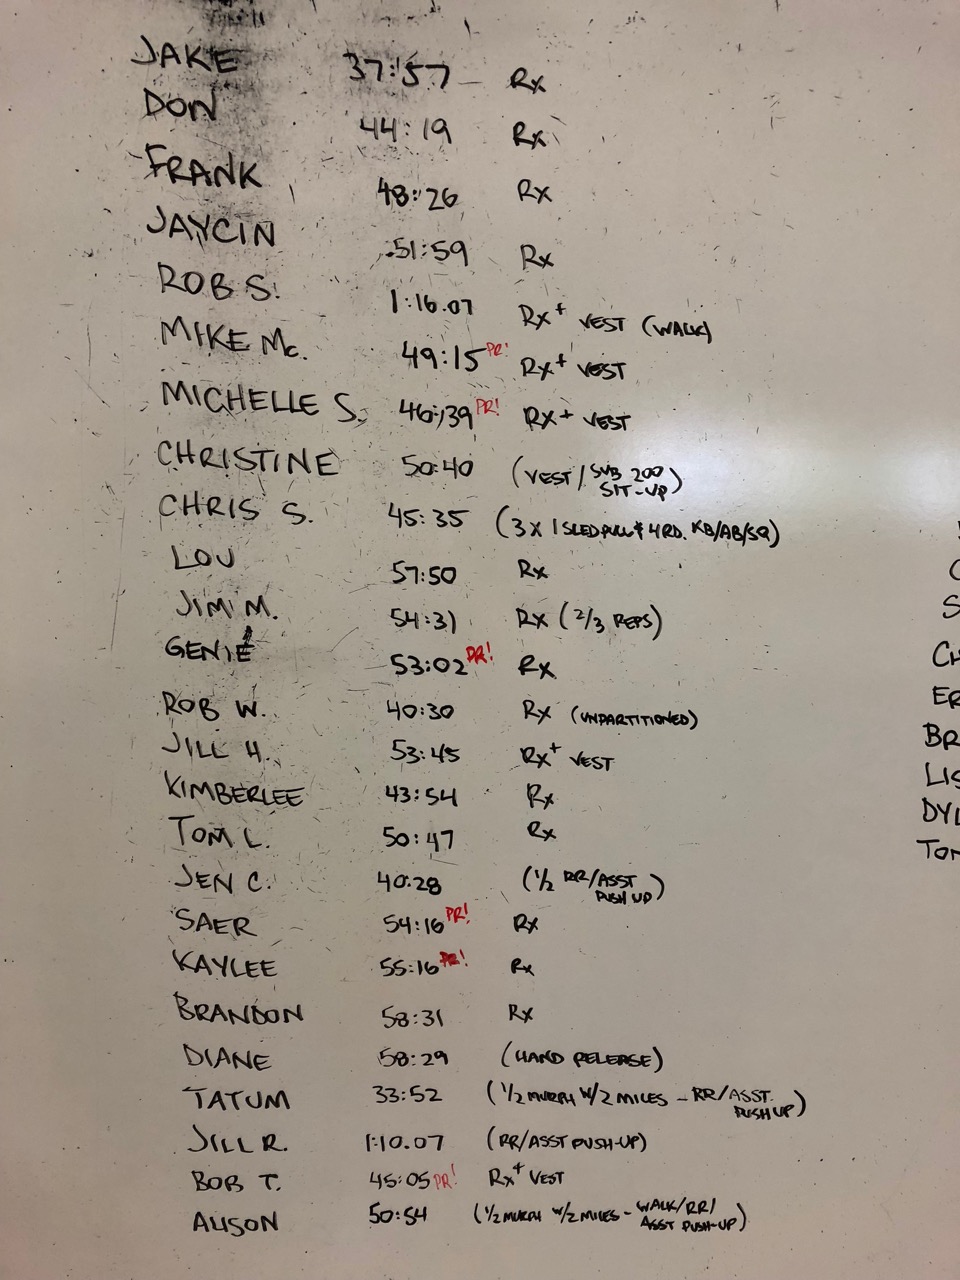 JAKE 37:57 Rx
DON 44:19 Rx
FRANK 48:26 Rx
JAYCIN 51:59 Rx
ROB S. 1:16.07 Rx+ VEST (WALK)
MIKE Mc. 49:15 PR! Rx+ VEST
MICHELLE S. 46:39 PR! RX+ VEST
CHRISTINE 50:40 (VEST/SUB 200 SIT-UP)
CHRIS S. 45:35 (3 X 1 SLED PULL & 4 RD. KB/AB/SQ)
LOU 57:50 Rx
JIM M. 54:31 Rx (2/3 REPS)
GENIE 53:02 PR! Rx
ROB W. 40:30 Rx (UNPARTITIONED)
JILL H. 53:45 Rx+ VEST
KIMBERLEE 43:54 Rx
TOM L. 50:47 Rx
JEN C. 40:28 (1/2 RR/ASST PUSH UP)
SAER 54:16 PR! Rx
KAYLEE 55:16 PR! Rx
BRANDON 58:31 Rx
DIANE 58:29 (HAND RELEASE)
TATUM 33:52 (1/2 MURPH W/2 MILES - RR/ASST. PUSH UP)
JILL R. 1:10.07 (RR/ASST PUSH-UP)
BOB T. 45:05 PR! Rx+ VEST
ALISON 50:54 (1/2 MURPH W/2 MILES - WALK/RR/ ASST PUSH-UP)
S
CH
ER
BR
LIS
DYL
TOM